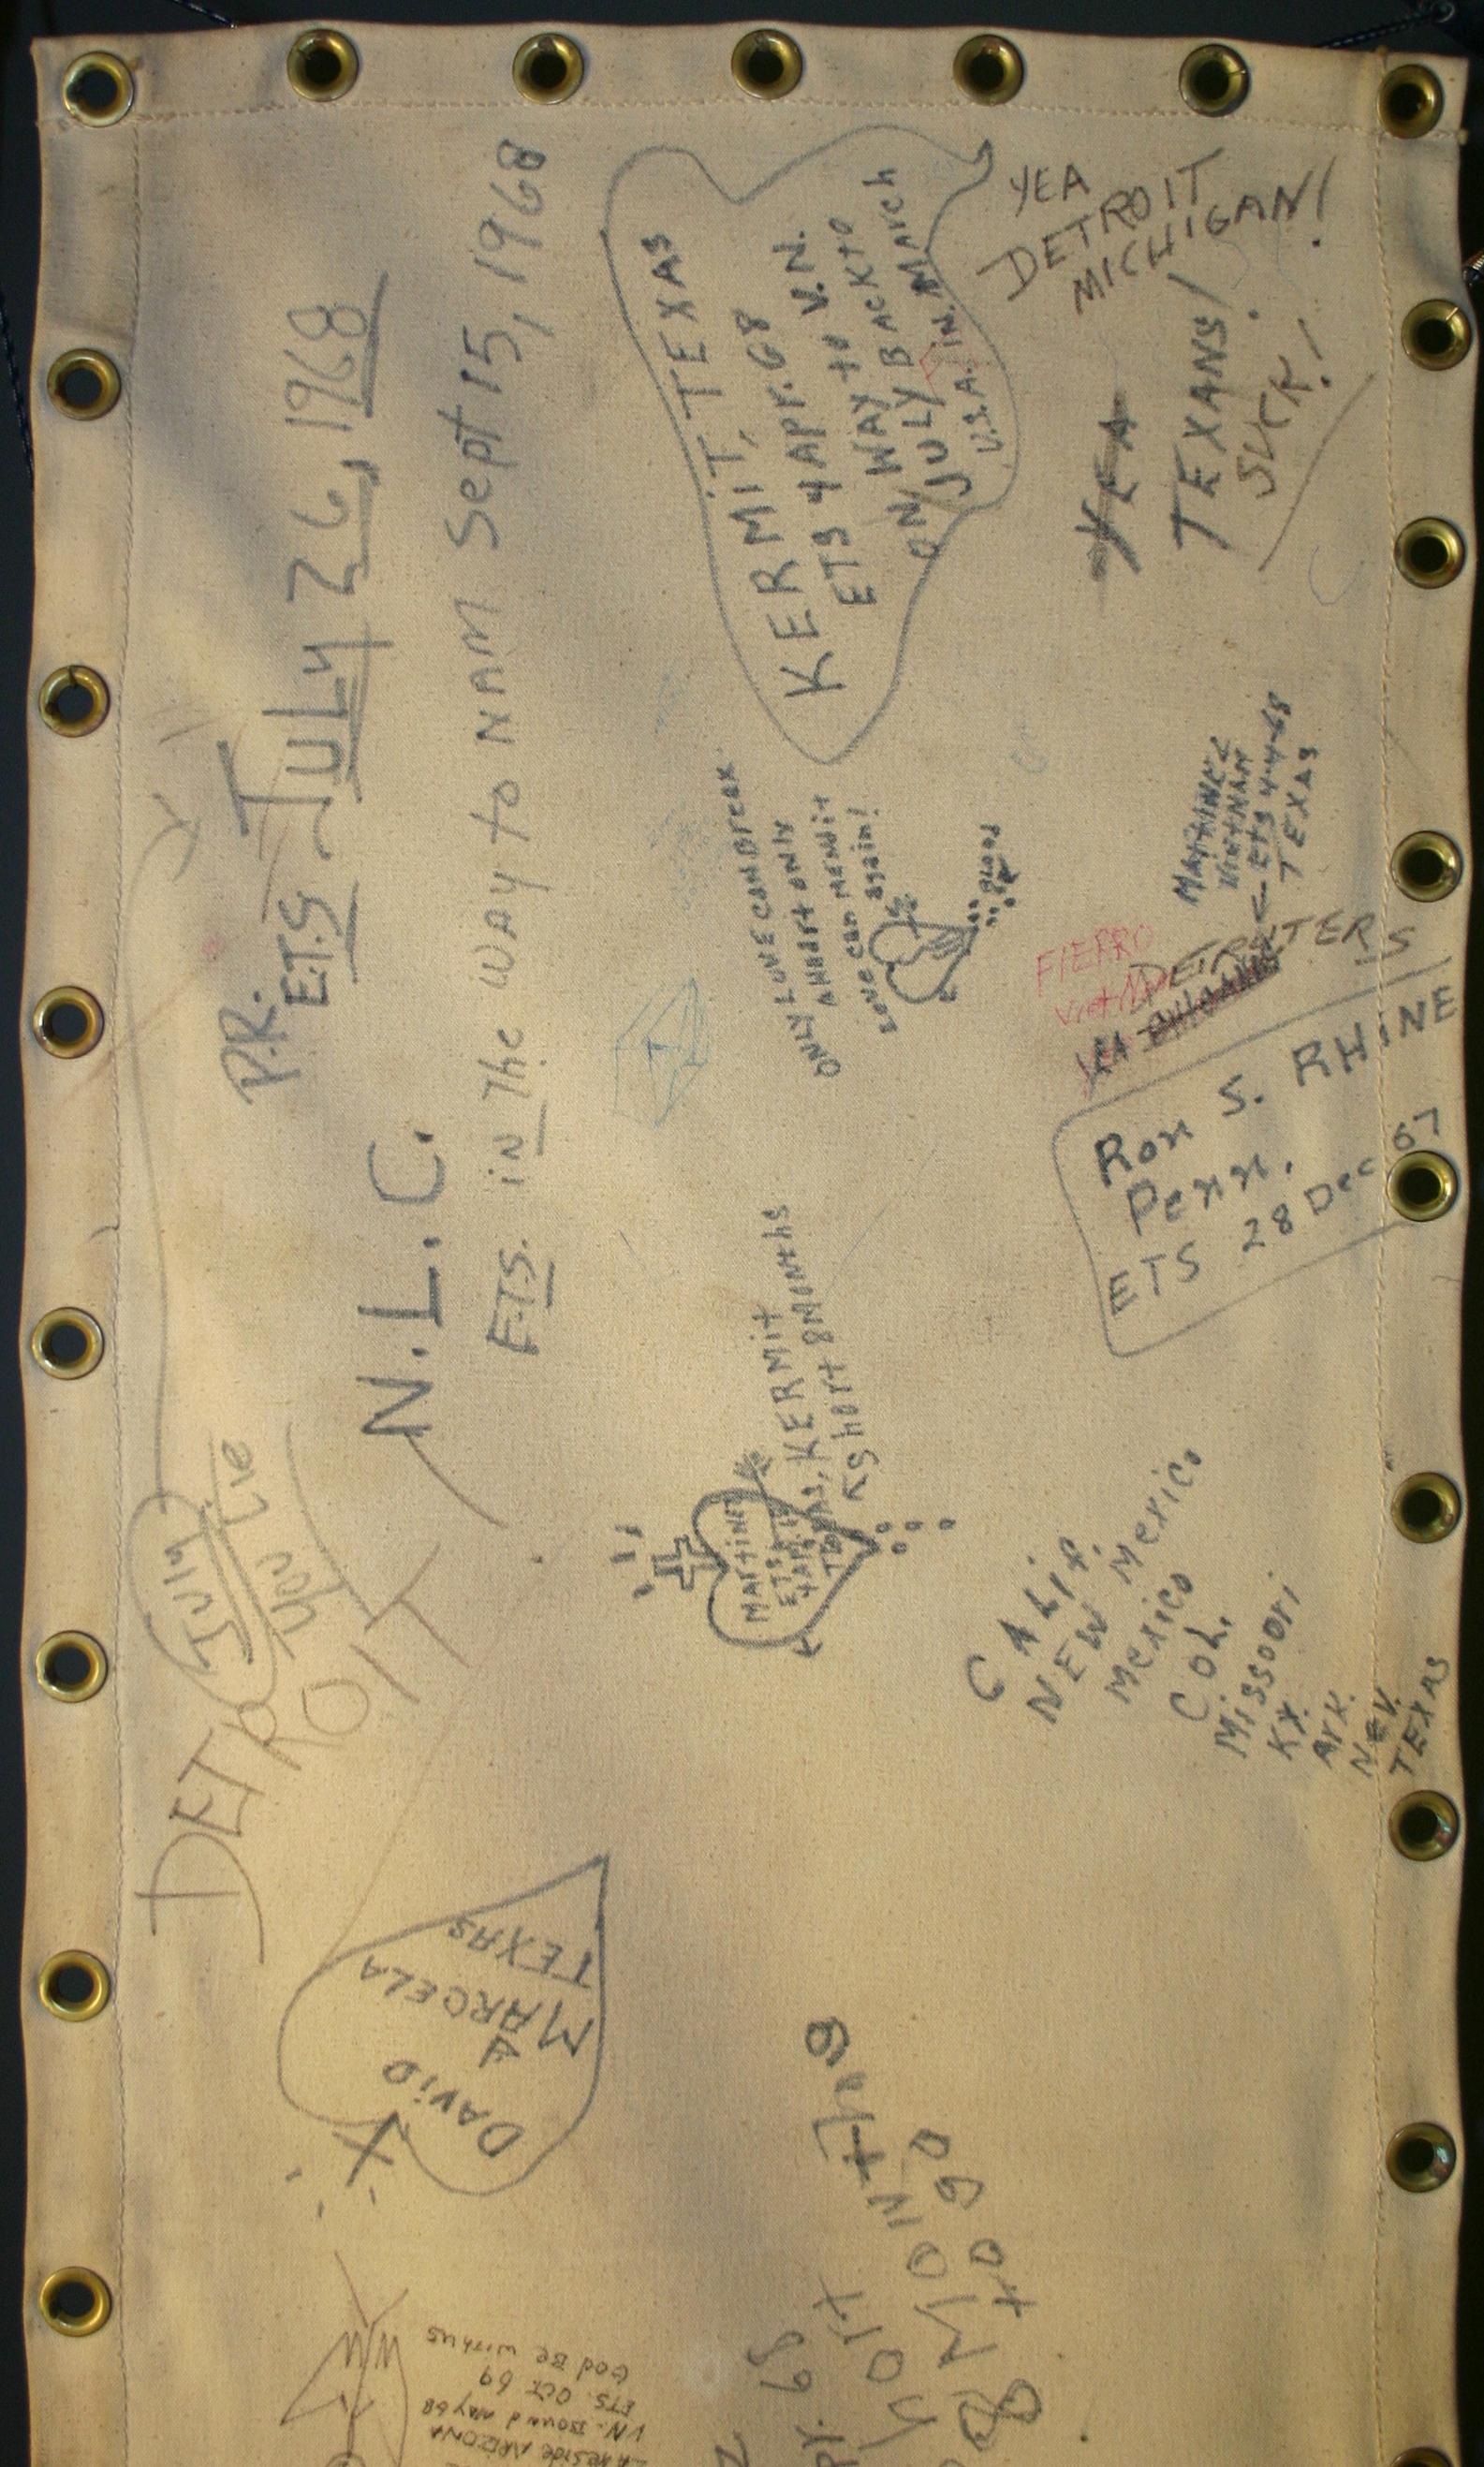 P.R.
E.T.S. July 26, 1968
N.L.C.
E.T.S. in The WAY to NAM Sept 15, 1968
KERMIT, TEXAS
KERMIT, 68
ETS 4 APr.
ON WAY to V.N.
JULY BACK to
U.S.A. IN. MArch
YEA
DETROIT
MICHIGAN!
YEA
TEXANS!
SUCK!
ONLY LOVE CAN Break
A HeArt ONLY
LOVE CAN MENdit
again!
MArtiNEZ
VietNAM
ETS 4-4-68
TEXAS
FIERRO
DETROITERS
Ron S. RHINE
Penn.
ETS 28 Dec 67
MArtiNEZ
ETS
TEXAS, KERMit
short 8 MONths
July
you Lie
DETROIT
CALif.
NEW Mexico
Mexico
COL.
Missoori
KY.
Ark.
NEV.
TEXAS
DAViD
&
MARCELA
TEXAS
8 MONthS
to go
68
LAKESIDE ARIZONA
VN. Bound May 68
ETS. OCT 69
God Be with us